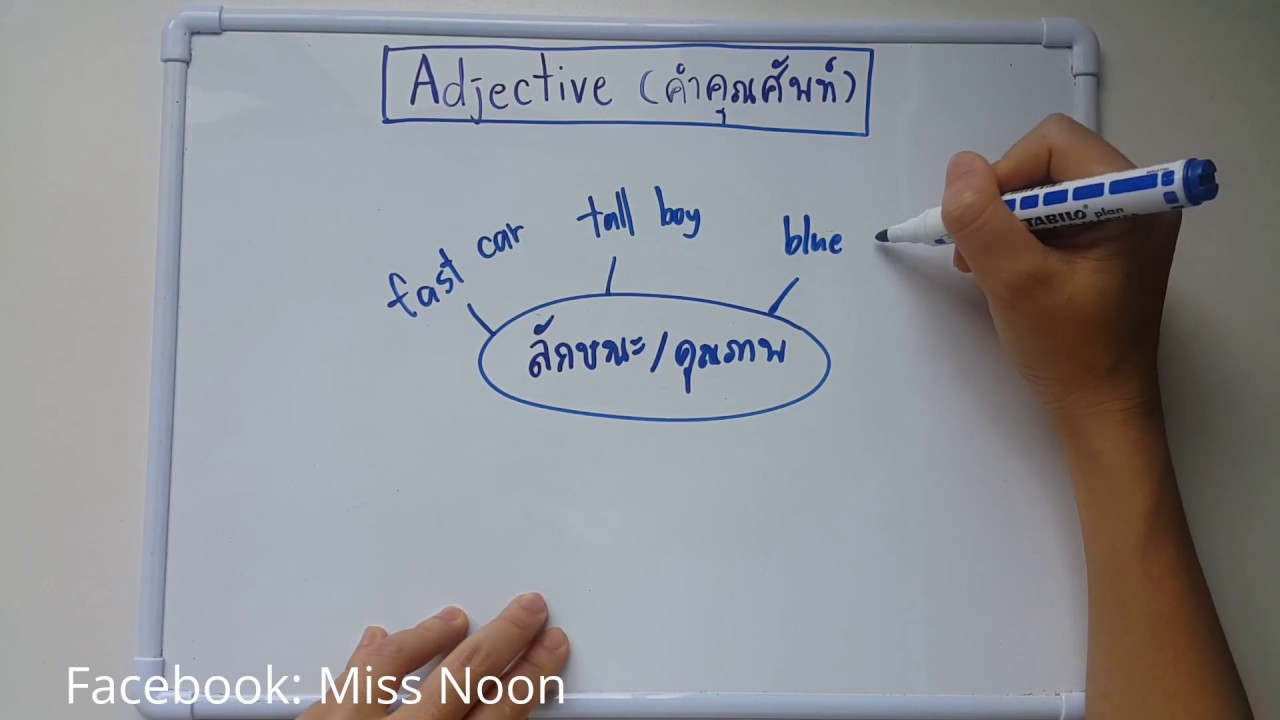 Adjective (คำคุณศัพท์)
fast car
tall boy
blue
ลักษณะ/คุณภาพ
STABILO plan
Facebook: Miss Noon